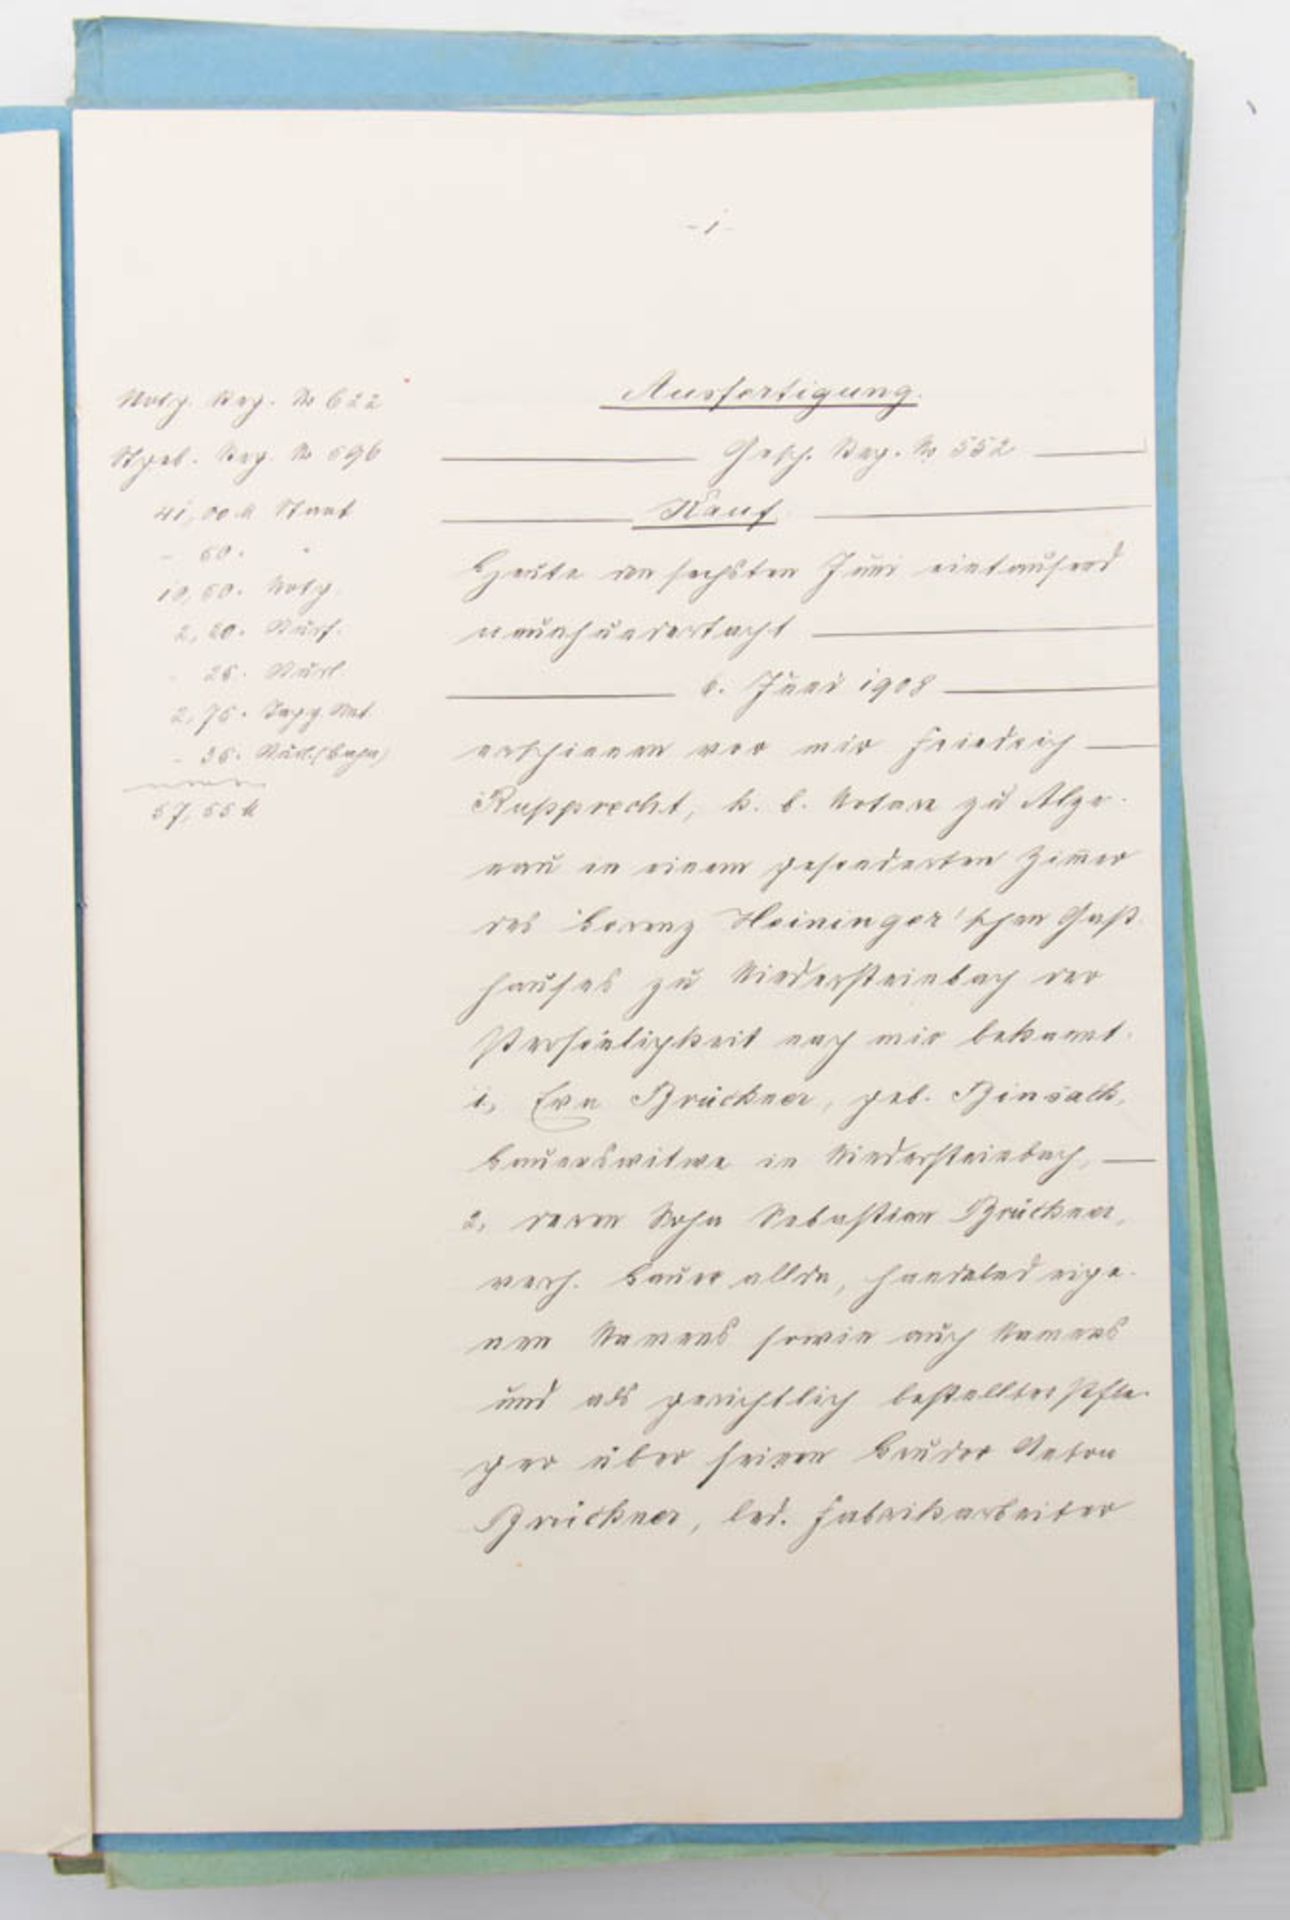 - 1 -
Notg. Reg. № 622
Stgeb. Reg. № 596
41,00 M Staat
- 60. "
10,50. Notg.
2,20.
- 25.
2,75.
- 35.
57,55 M
Ausfertigung.
Gesch. Reg. № 552
Kauf
Heute den sechsten Juni eintausend
neunhundertacht
6. Juni 1908
erschienen vor mir Friedrich
Rupprecht, k. b. Notar zu Alze-
nau in einem gesonderten Zimmer
des Lorenz Heininger'schen Gast-
hauses zu Niedersteinbach der
Persönlichkeit nach mir bekannt:
1, Eva Brückner, geb. Binsack,
Bauerswitwe in Niedersteinbach,
2, deren Sohn Sebastian Brückner,
verh. Bauer allda, handelnd eige-
nen Namens sowie auch Namens
und als gerichtlich bestellter Pfle-
ger über seinen Bruder Anton
Brückner, led. Fabrikarbeiter